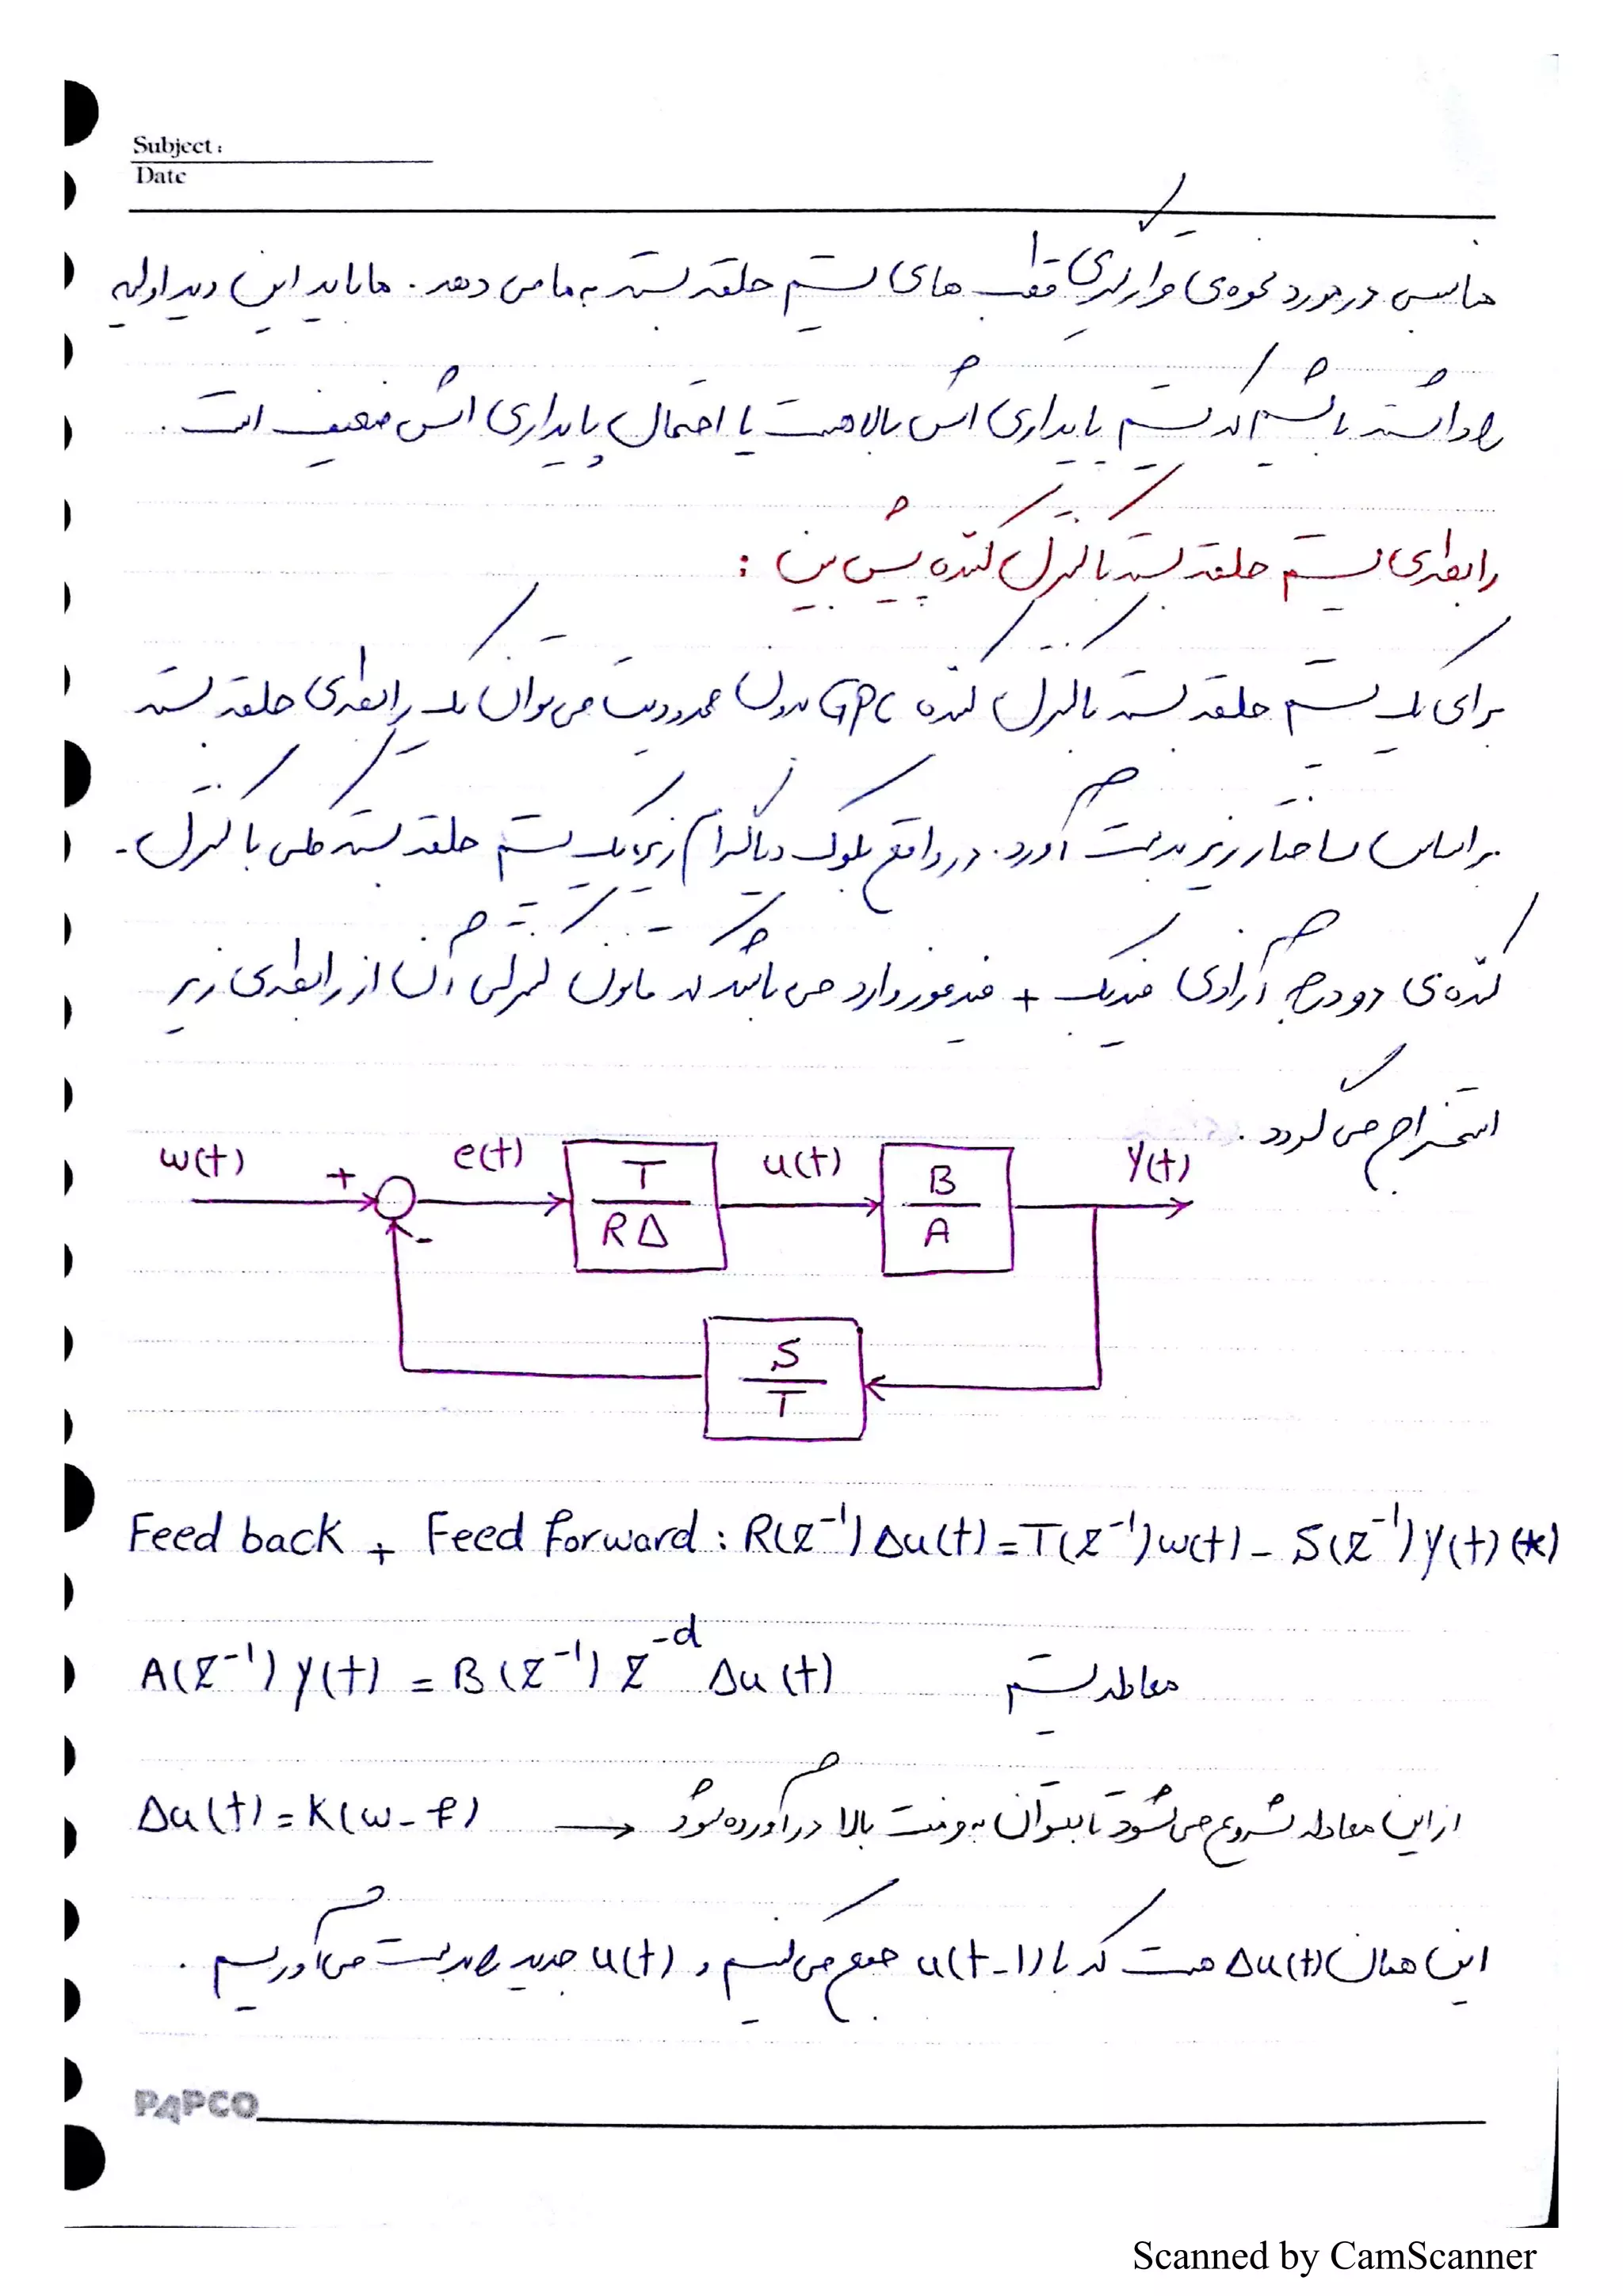 Subject:
Date
مناسبی در مورد نحوه‌ی قرارگیری قطب های سیستم حلقه بسته به ما می دهد. ما باید این دید اولیه
را داشته باشیم که سیستم پایداری اش بالا هست یا احتمال پایداری اش ضعیف است.
رابطه‌ی سیستم حلقه بسته با کنترل کننده پیش بین :
برای یک سیستم حلقه بسته با کنترل کننده GPC بدون محدودیت می توان یک رابطه‌ی حلقه بسته
براساس ساختار زیر بدست آورد. در واقع بلوک دیاگرام زیر یک سیستم حلقه بسته کلی با کنترل-
کننده‌ی دو درجه آزادی فیدبک + فیدفوروارد می باشد که قانون کنترلی آن از رابطه‌ی زیر
استخراج می گردد.
w(t) + e(t) T/RΔ u(t) B/A y(t)
-
S/T
Feed back + Feed forward : R(z⁻¹) Δu(t) = T(z⁻¹) w(t) - S(z⁻¹) y(t) (*)
A(z⁻¹) y(t) = B(z⁻¹) z⁻ᵈ Δu(t) معادله سیستم
Δu(t) = K(w - f) → از این معادله شروع می شود تا بتوان به فرمت بالا درآورده شود
این همان Δu(t) هست که با u(t-1) جمع می کنیم و u(t) جدید را بدست می آوریم.
PAPCO
Scanned by CamScanner